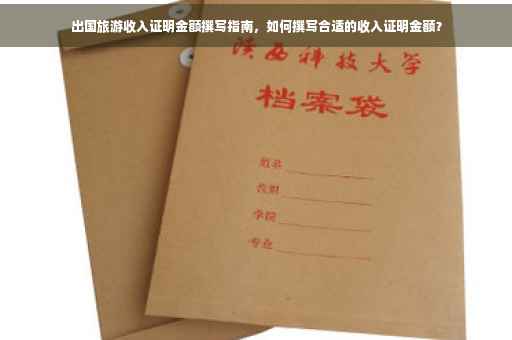 出国旅游收入证明金额撰写指南，如何撰写合适的收入证明金额？
陕西科技大学
档案袋
姓名
学院
专业